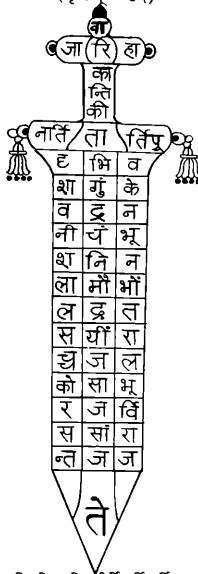 वा
जा रि हा
का
न्ति
की
नार्ति ता र्तिपु
दृ भि व
शा गुं के
व द्र न
नी चं भू
श नि न
ला मौ भों
ल द्र त
स यीं रा
च्च ज ल
को सा भू
र ज र्वि
स सां रा
न्त ज ज
ते